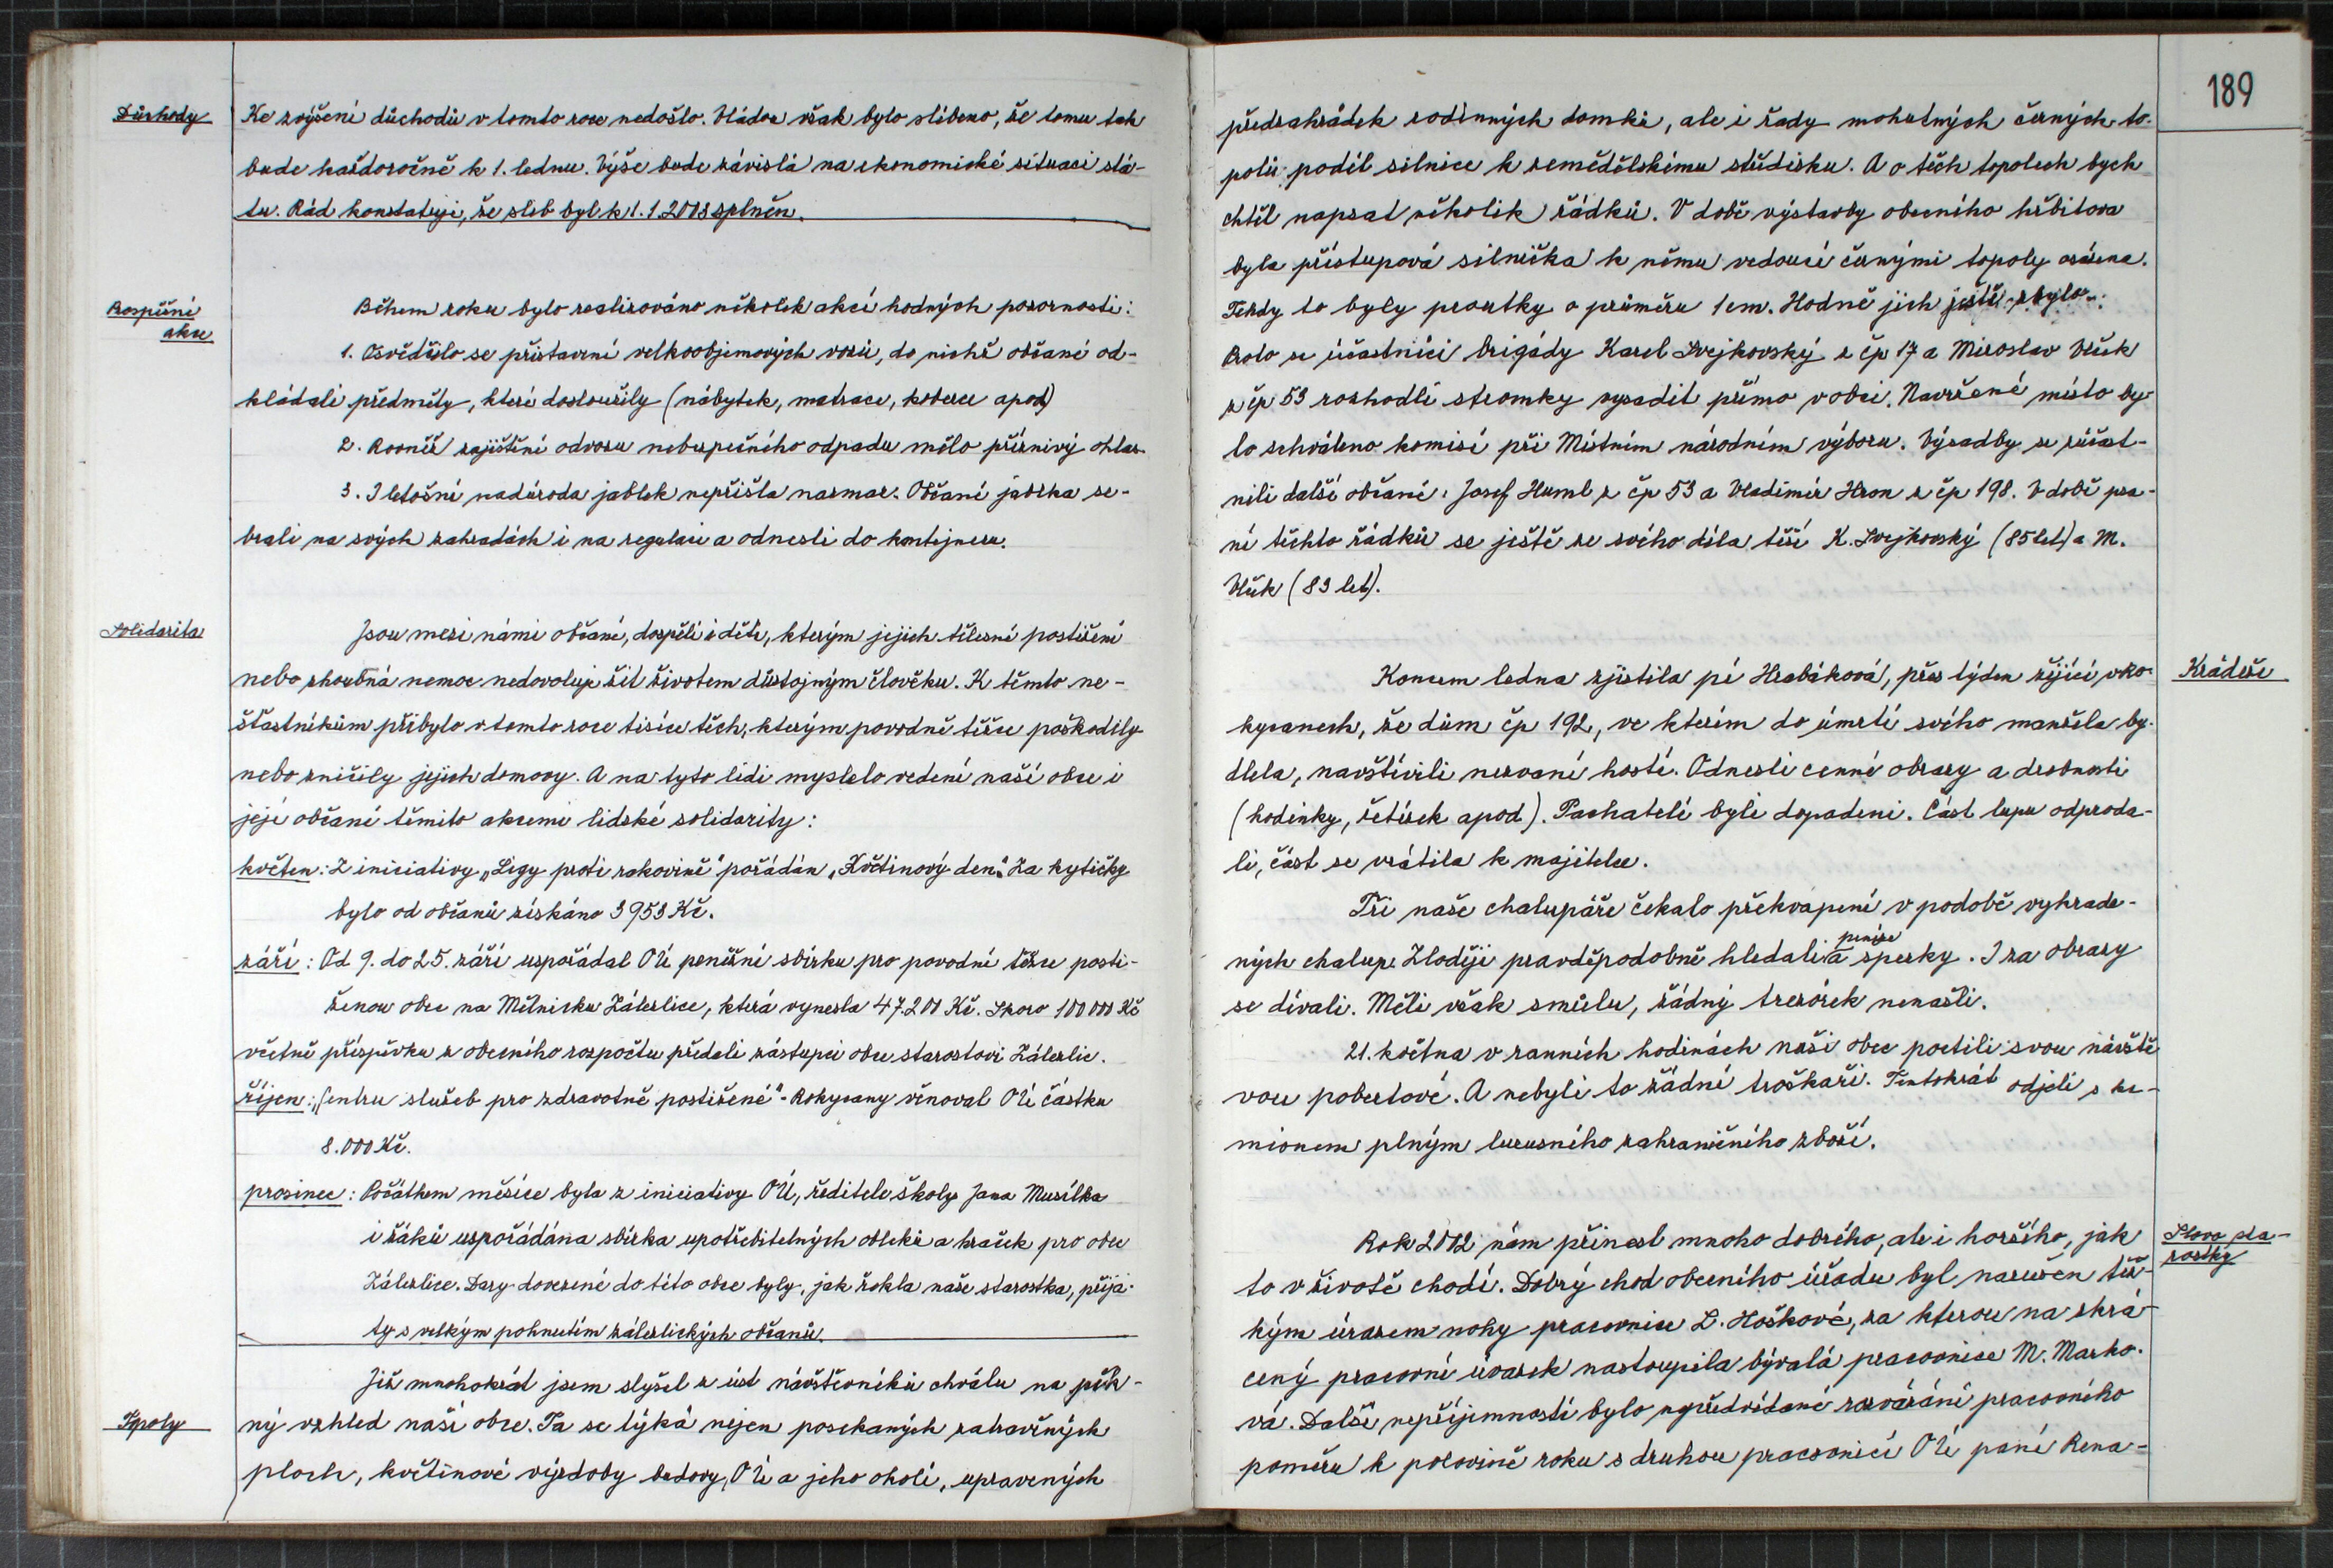 Důchody
Ke zvýšení důchodů v tomto roce nedošlo. Vládou však bylo slíbeno, že tomu tak
bude každoročně k 1. lednu. Výše bude závislá na ekonomické situaci stá-
tu. Rád konstatuji, že slib byl k 1.1.2013 splněn.
Prospěšné
akce
Během roku bylo realizováno několik akcí hodných pozornosti:
1. Osvědčilo se přistavení velkoobjemových vozů, do nichž občané od-
kládali předměty, které dosloužily (nábytek, matrace, koberce apod)
2. Rovněž zajištění odvozu nebezpečného odpadu mělo příznivý ohlas.
3. I letošní nadúroda jablek nepřišla nazmar. Občané jablka se-
brali na svých zahradách i na regulaci a odnesli do kontejneru.
Solidarita
Jsou mezi námi občané, dospělí i děti, kterým jejich tělesné postižení
nebo zhoubná nemoc nedovoluje žít životem důstojným člověku. K těmto ne-
šťastníkům přibylo v tomto roce tisíce těch, kterým povodně těžce poškodily
nebo zničily jejich domovy. A na tyto lidi myslelo vedení naší obce i
její občané těmito akcemi lidské solidarity:
květen: Z iniciativy „Ligy proti rakovině" pořádán „Květinový den." Za kytičky
bylo od občanů získáno 3953 Kč.
září: Od 9. do 25. září uspořádal OÚ peněžní sbírku pro povodní těžce posti-
ženou obec na Mělnicku Zálezlice, která vynesla 47.200 Kč. Skoro 100 000 Kč
včetně příspěvku z obecního rozpočtu předali zástupci obce starostovi Zálezlic.
říjen: „Centru služeb pro zdravotně postižené" - Rokycany věnoval OÚ částku
8.000 Kč.
prosinec: Počátkem měsíce byla z iniciativy OÚ, ředitele školy Jana Musílka
i žáků uspořádána sbírka upotřebitelných obleků a hraček pro obec
Zálezlice. Dary dovezené do této obce byly, jak řekla naše starostka, přija-
ty s velkým pohnutím zálezlických občanů.
Již mnohokrát jsem slyšel z úst návštěvníků chválu na pěk-
Topoly
ný vzhled naší obce. Ta se týká nejen posekaných zatravněných
ploch, květinové výzdoby budovy OÚ a jeho okolí, upravených
189
předzahrádek rodinných domků, ale i řady mohutných černých to-
polů podél silnice k zemědělskému středisku. A o těch topolech bych
chtěl napsat několik řádků. V době výstavby obecního hřbitova
byla přístupová silnička k němu vedoucí černými topoly osázena.
Tehdy to byly proutky o průměru 1 cm. Hodně jich ještě zbylo.
Proto se účastníci brigády Karel Svejkovský z čp 17 a Miroslav Vlček
z čp 53 rozhodli stromky vysadit přímo v obci. Navržené místo by-
lo schváleno komisí při Místním národním výboru. Výsadby se zúčast-
nili další občané: Josef Huml z čp 53 a Vladimír Hron z čp 198. V době psa-
ní těchto řádků se ještě ze svého díla těší K. Svejkovský (85 let) a M.
Vlček (83 let).
Krádeže
Koncem ledna zjistila pí Hrabáková, přes týden žijící v Ro-
kycanech, že dům čp 192, ve kterém do úmrtí svého manžela by-
dlela, navštívili nezvaní hosté. Odnesli cenné obrazy a drobnosti
(hodinky, řetízek apod). Pachatelé byli dopadeni. Část lupu odproda-
li, část se vrátila k majitelce.
Tři naše chalupáře čekalo překvapení v podobě vykrade-
peníze
ných chalup. Zloději pravděpodobně hledali a šperky. I za obrazy
se dívali. Měli však smůlu, žádný trezórek nenašli.
21. května v ranních hodinách naši obec poctili svou návště-
vou pobertové. A nebyli to žádní troškaři. Tentokrát odjeli s ka-
mionem plným luxusního zahraničního zboží.
Slovo sta-
rostky
Rok 2012 nám přinesl mnoho dobrého, ale i horšího, jak
to v životě chodí. Dobrý chod obecního úřadu byl narušen těž-
kým úrazem nohy pracovnice L. Hoškové, za kterou na zkrá-
cený pracovní úvazek nastoupila bývalá pracovnice M. Marko-
vá. Další nepříjemností bylo nepředvídané rozvázání pracovního
poměru k polovině roku s druhou pracovnicí OÚ paní Rena-